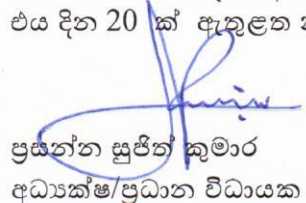 එය දින 20 ක් ඇතුළත
ප්‍රසන්න සුජිත් කුමාර
අධ්‍යක්ෂ/ප්‍රධාන විධායක